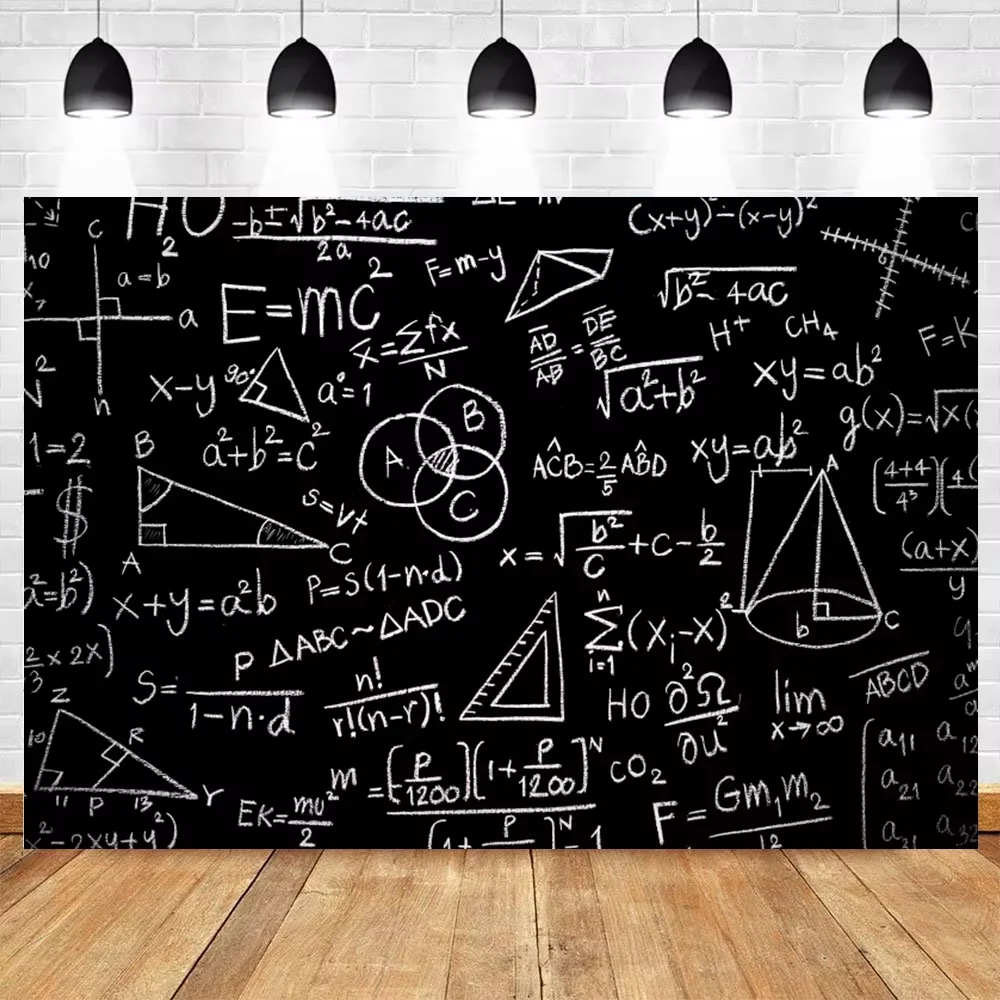 C
HO
2
-b±√b²-4ac
2a
(x+y)²-(x-y)²
10
a=b
a
n
E=mc²
F=m-y
√b²-4ac
H+
CH₄
F=K
x̄=Σfx
N
AD
AB
=
DE
BC
√a²+b²
xy=ab²
x-y
90°
a°=1
g(x)=√x(
1=2
B
a²+b²=c²
A
B
C
AĈB=2/5 AB̂D
xy=ab²
A
(4+4
4³)
$
S=vt
A
C
x=√b²/C+C-b/2
(a+x)
y
b
C
a²=b²)
x+y=a²b
P=S(1-n·d)
n
Σ(xᵢ-x)²
i=1
2/3 x 2x)
ΔABC~ΔADC
P
S=
1-n·d
n!
r!(n-r)!
HO
∂²Ω
∂u²
lim
x→∞
ABCD
Z
10
R
11
P
13
Y
m=[P/1200][1+P/1200]ᴺ
[1+P ]ᴺ-1
CO₂
EK=mv²
2
F=Gm₁m₂
a₁₁ a₁₂
a₂₁ a₂₂
a₃₁ a₃₂
x²-2xy+y²)